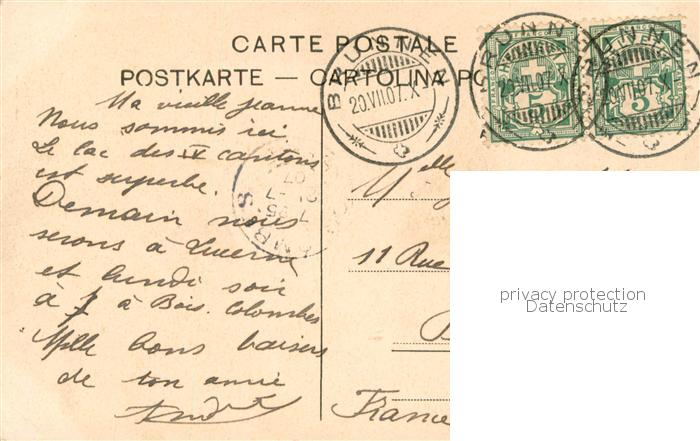 CARTE POSTALE
POSTKARTE — CARTOLINA PO
BRUNNEN
20.VII.07.X
BRUNNEN
20.VII.07.X
5
BRUNNEN
VII.07.X
5
Ma vieille Jeanne
Nous sommes ici
Le lac des IV cantons
est superbe.
Demain nous
serons à Lucerne
et lundi soir
à Bois. Colombes
Mille bons baisers
de ton amie
Mlle
11 Rue
France
privacy protection
Datenschutz